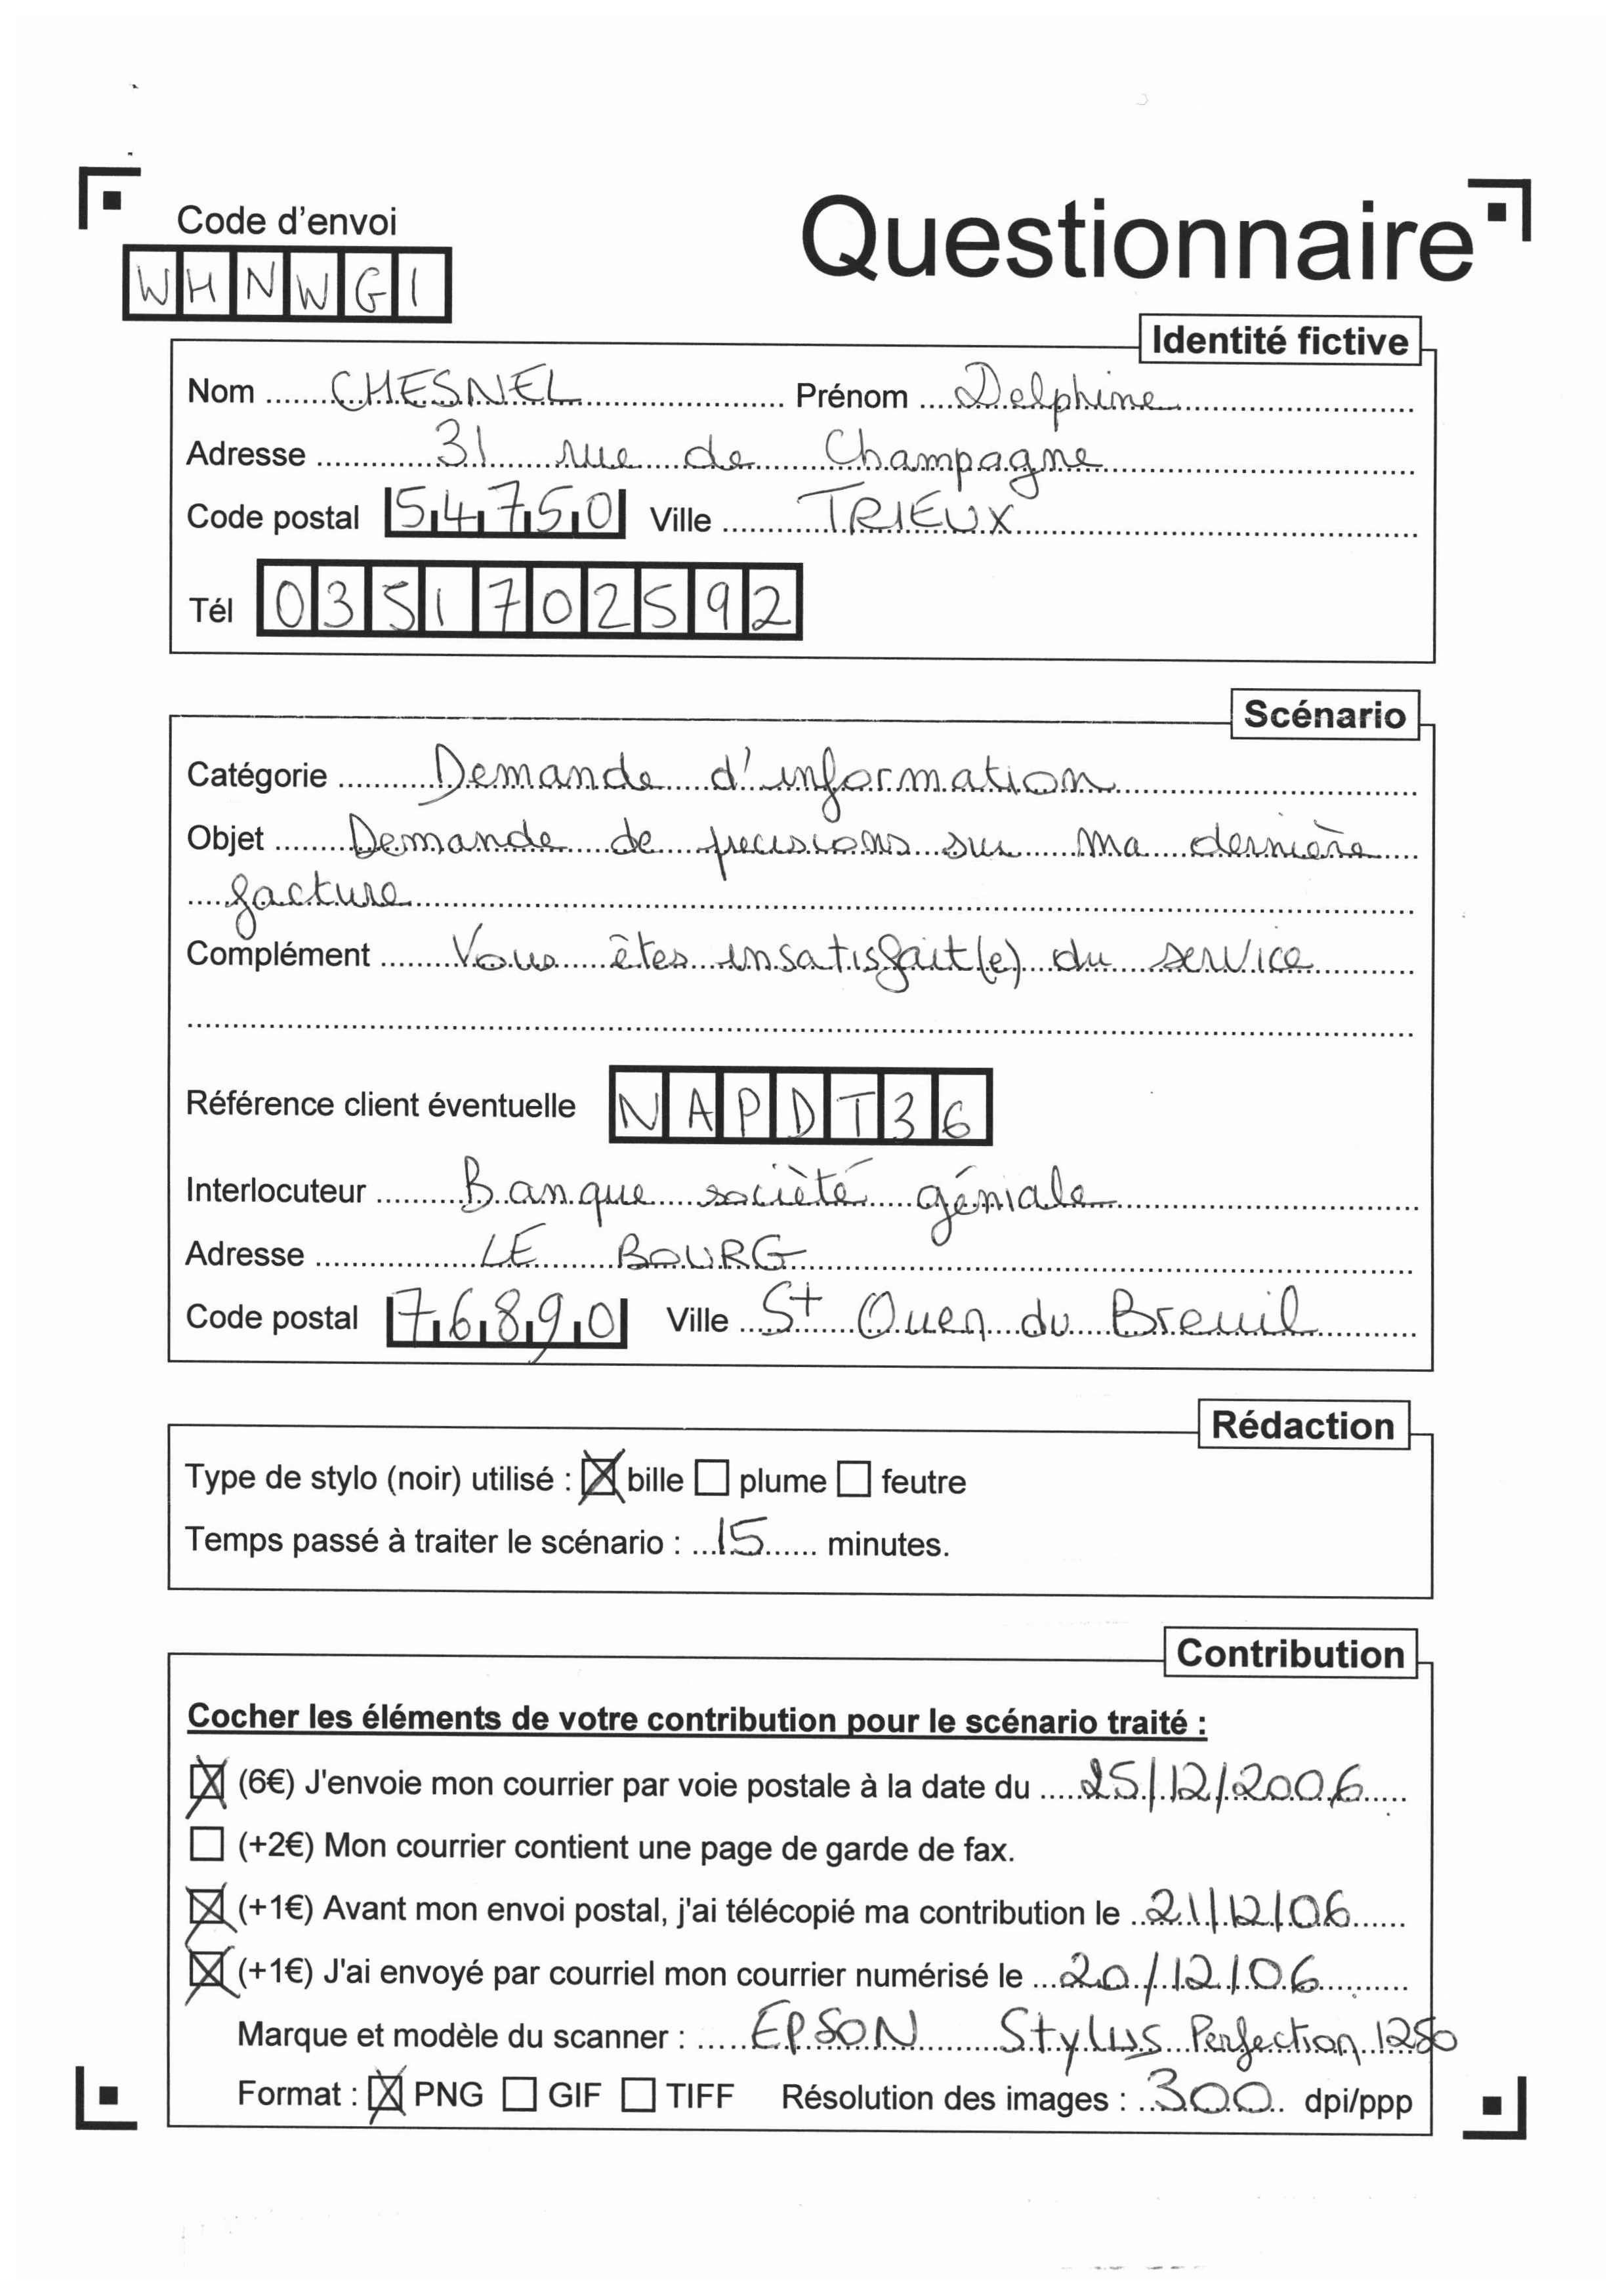 Code d'envoi
Questionnaire
WHNWGI
Identité fictive
Nom CHESNEL Prénom Delphine
Adresse 31 rue de Champagne
Code postal 54750 Ville TRIEUX
Tél 0351702592
Scénario
Catégorie Demande d'information
Objet Demande de precisions sur ma dernière
facture
Complément Vous êtes insatisfait(e) du service
Référence client éventuelle NAPDT36
Interlocuteur Banque société géniale
Adresse LE BOURG
Code postal 76890 Ville St Ouen du Breuil
Rédaction
Type de stylo (noir) utilisé : ☒ bille ☐ plume ☐ feutre
Temps passé à traiter le scénario : 15 minutes.
Contribution
Cocher les éléments de votre contribution pour le scénario traité :
☒ (6€) J'envoie mon courrier par voie postale à la date du 25/12/2006
☐ (+2€) Mon courrier contient une page de garde de fax.
☒ (+1€) Avant mon envoi postal, j'ai télécopié ma contribution le 21/12/06
☒ (+1€) J'ai envoyé par courriel mon courrier numérisé le 20/12/06
Marque et modèle du scanner : EPSON Stylus Perfection 1250
Format : ☒ PNG ☐ GIF ☐ TIFF Résolution des images : 300 dpi/ppp